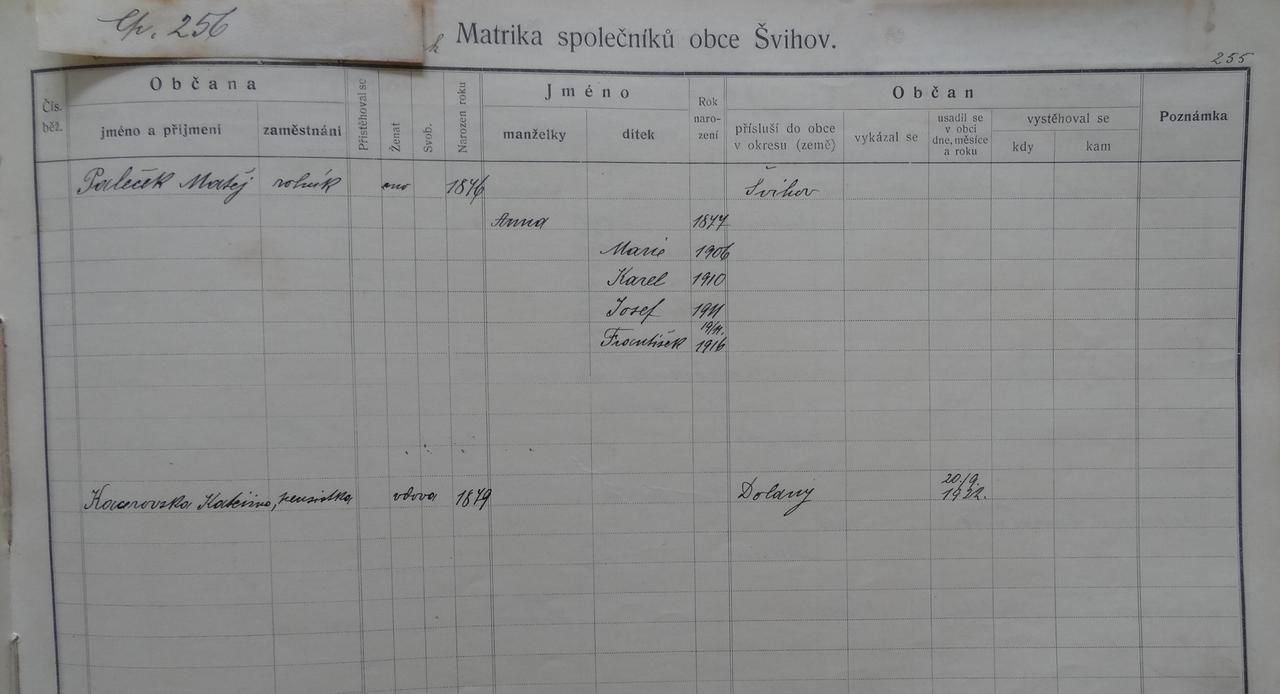 Čp. 256
Matrika společníků obce Švihov.
255
Čís. běž.
Občana
jméno a příjmení
zaměstnání
Přistěhoval se
Ženat
Svob.
Narozen roku
Jméno
manželky
dítek
Rok naro- zení
Občan
přísluší do obce v okresu (země)
vykázal se
usadil se v obci dne, měsíce a roku
vystěhoval se
kdy
kam
Poznámka
Paleček Matěj rolník ano 1876 Švihov
Anna 1877
Marie 1906
Karel 1910
Josef 1911
František 19/11. 1916
Kateřina, pensistka vdova 1879 Dolany 20/9. 1922.